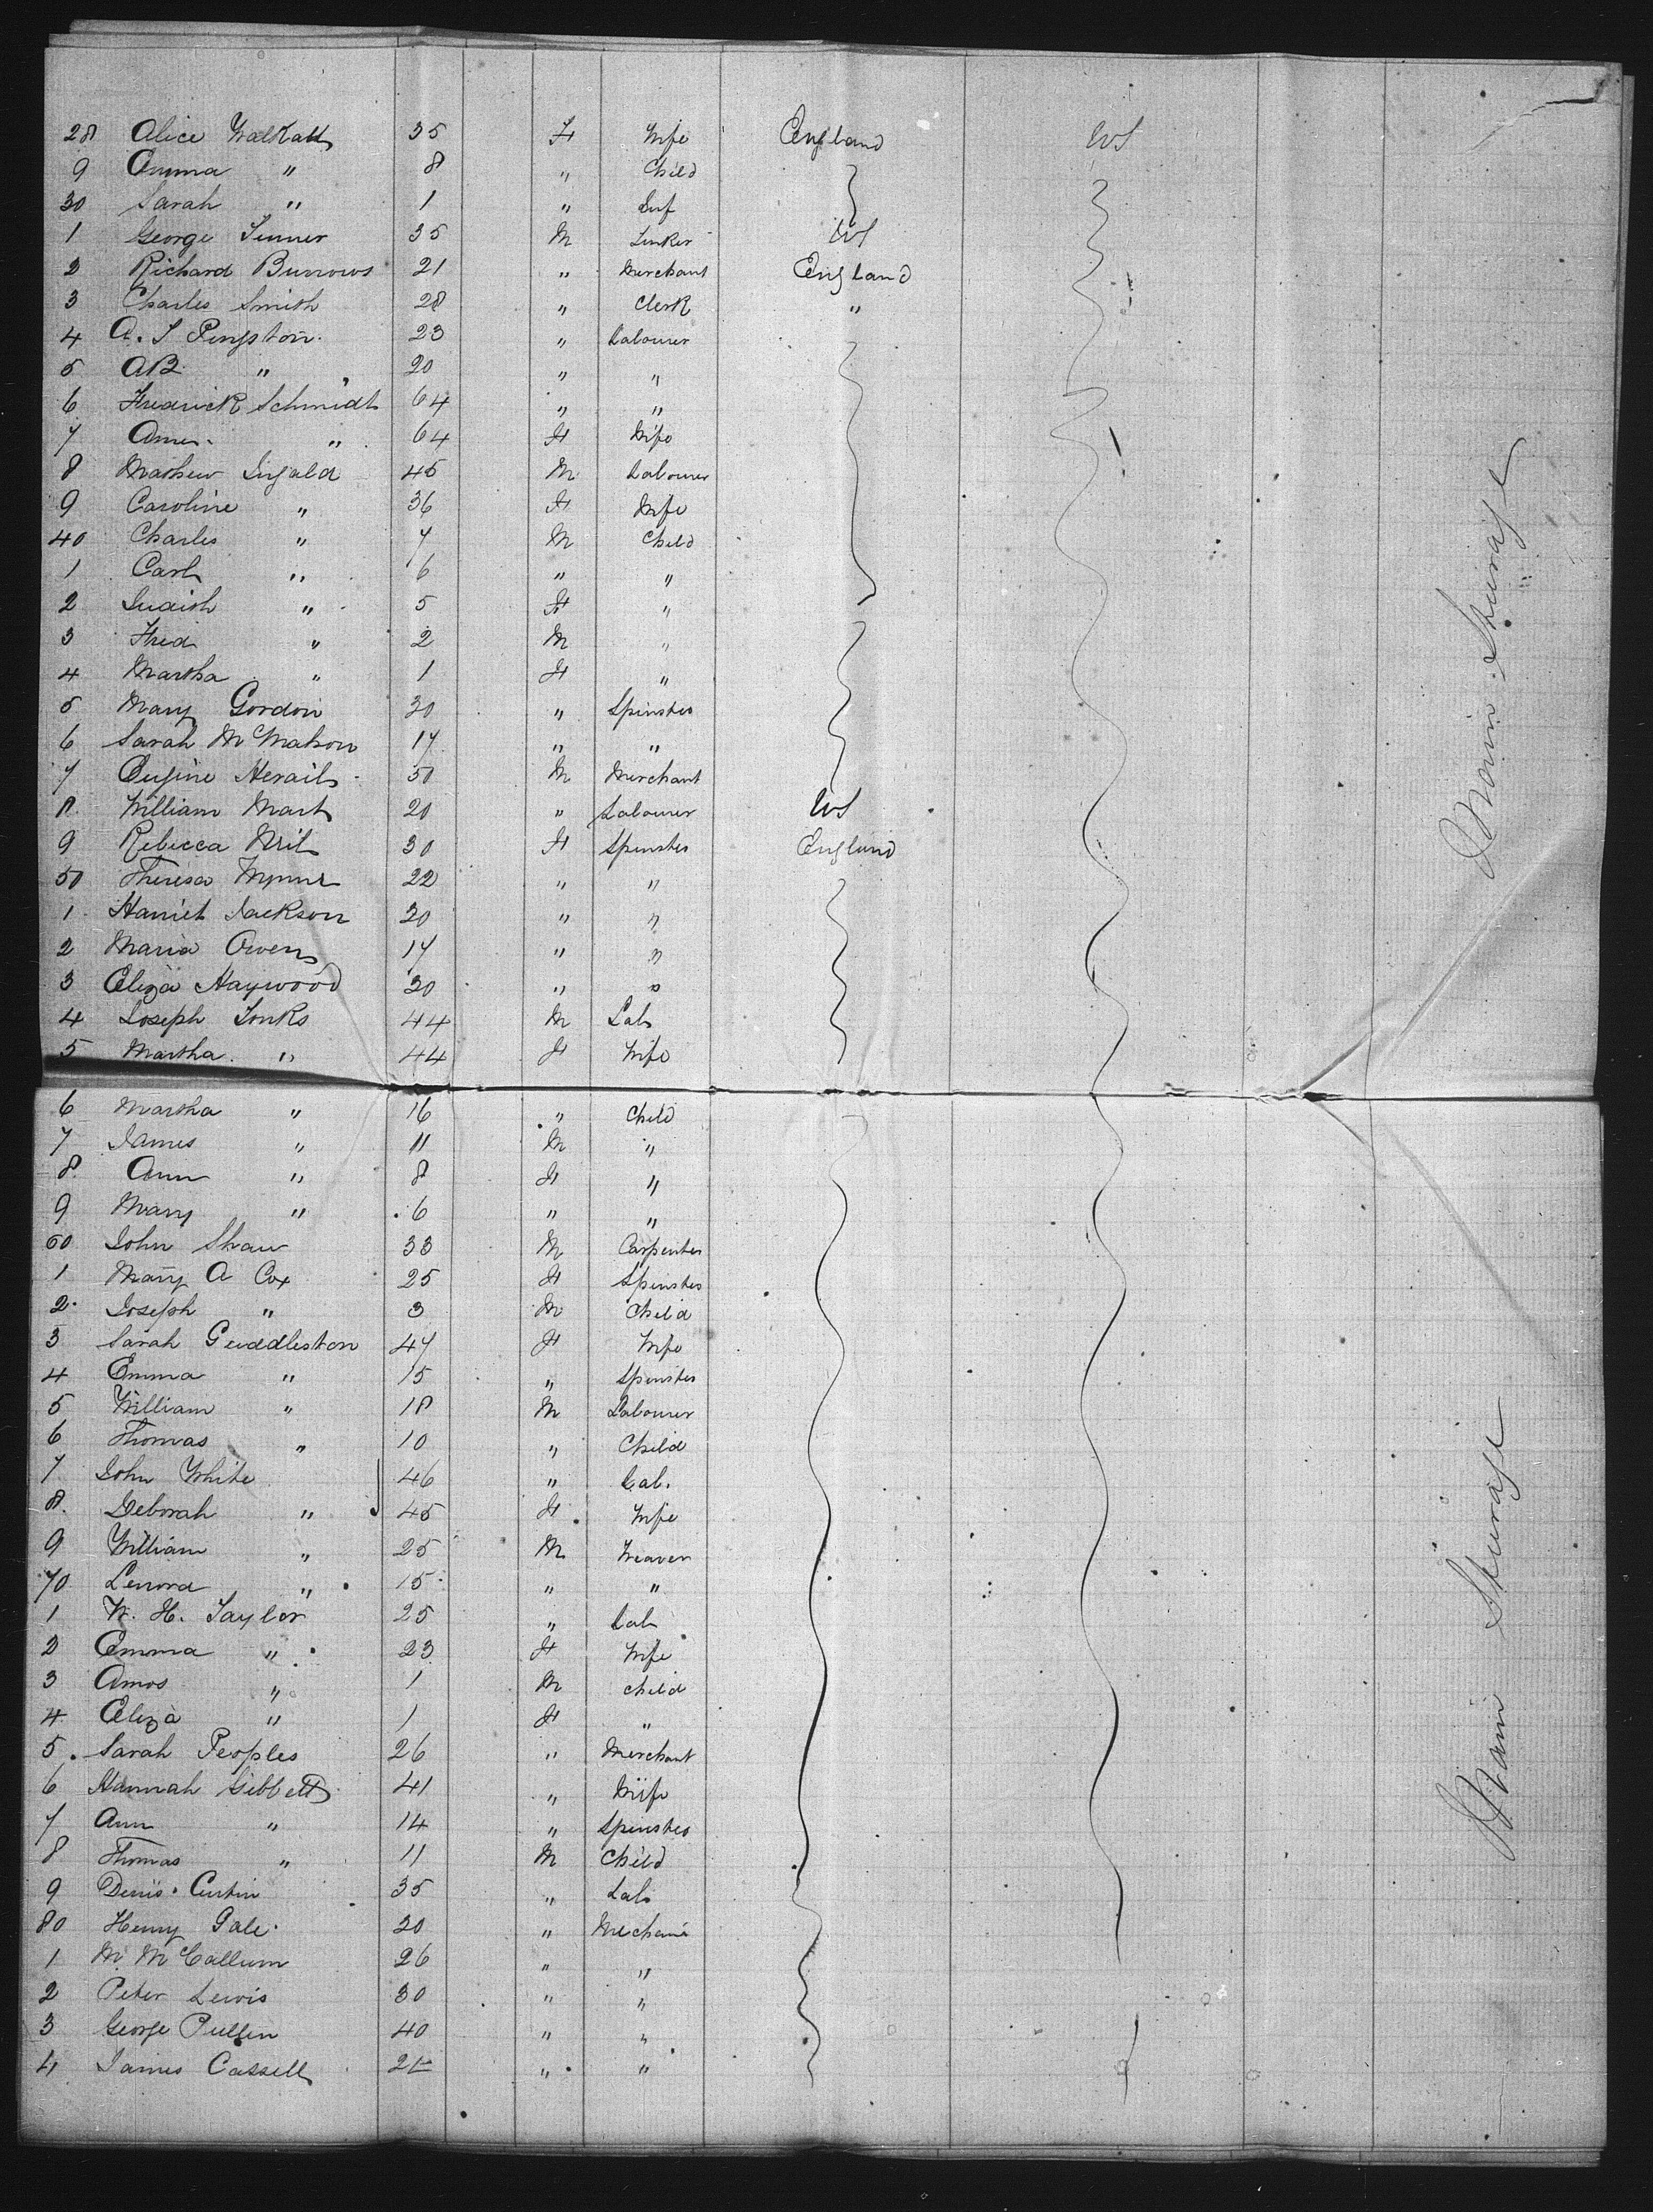 28 Alice Walkatt 35 F Wife England US
9 Emma " 8 " Child
30 Sarah " 1 " Inf
1 George Turner 35 M Tinker US
2 Richard Burrows 21 " Merchant England
3 Charles Smith 28 " Clerk "
4 A. S Pingston 23 " Labourer
5 AB " 20 " "
6 Fredrick Schmidt 64 " "
7 " 64 F Wife
8 Mathew 45 M Labourer
9 Caroline " 36 F Wife
40 Charles " 7 M Child
1 Carl " 6 " "
2 " 5 F "
3 Fred " 2 M "
4 Martha " 1 F "
5 Mary Gordon 30 " Spinster
6 Sarah McMahon 17 " "
7 Eugine 50 M Merchant
8 William Mart 20 " Labourer US
9 Rebecca 30 F Spinster England
50 Theresa Wynne 22 " "
1 Harriet Jackson 20 " "
2 Maria Owens 17 " "
3 Eliza Haywood 20 " "
4 Joseph Tonks 44 M Lab
5 Martha " 44 F Wife
6 Martha " 16 " Child
7 James " 11 M "
8 Ann " 8 F "
9 Mary " 6 " "
60 John Shaw 33 M Carpenter
1 Mary A Cox 25 F Spinster
2 Joseph " 3 M Child
3 Sarah 47 F Wife
4 Emma " 15 " Spinster
5 William " 18 M Labourer
6 Thomas " 10 " Child
7 John White 46 " Lab.
8 Deborah " 45 F Wife
9 William " 25 M Weaver
70 Lenora " 15 " "
1 W. H. Taylor 25 " Lab
2 Emma " 23 F Wife
3 Amos " 1 M child
4 Eliza " 1 F "
5 Sarah Peoples 26 " Merchant
6 Hannah Gibbett 41 " Wife
7 Ann " 14 " Spinster
8 Thomas " 11 M Child
9 Denis Curtin 35 " Lab
80 Henry Gale 20 " Mechanic
1 M. McCallum 26 " "
2 Peter Lewis 30 " "
3 George Pullen 40 " "
4 James Cassell " "
Main Steerage
Main Steerage